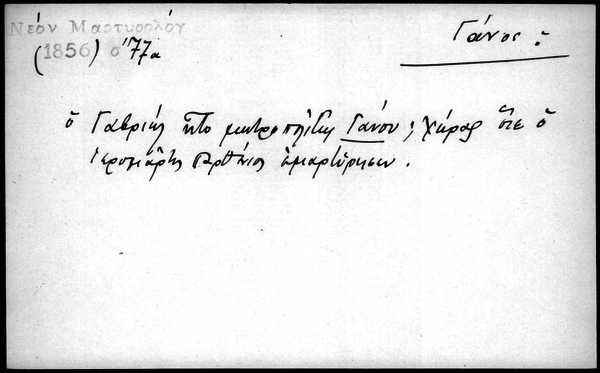 Νέον Μαρτυρολόγ
(1856) σ 77α
Γάνος :
ὁ Γαβριὴλ ἦτο μητροπολίτης Γάνου ; Χώρας ὅτε ὁ
ἱερομάρτυς Παρθένιος ἐμαρτύρησεν .